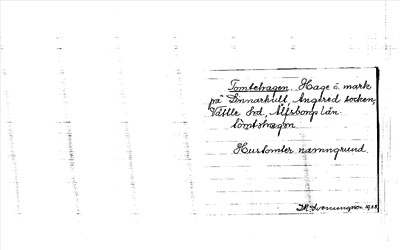 Tomtehagen. Hage å mark
på Linnarhult Angered socken,
Vättle hd, Älfsborgs län.
tòmtehagen
Hustomter namngrund.
1928